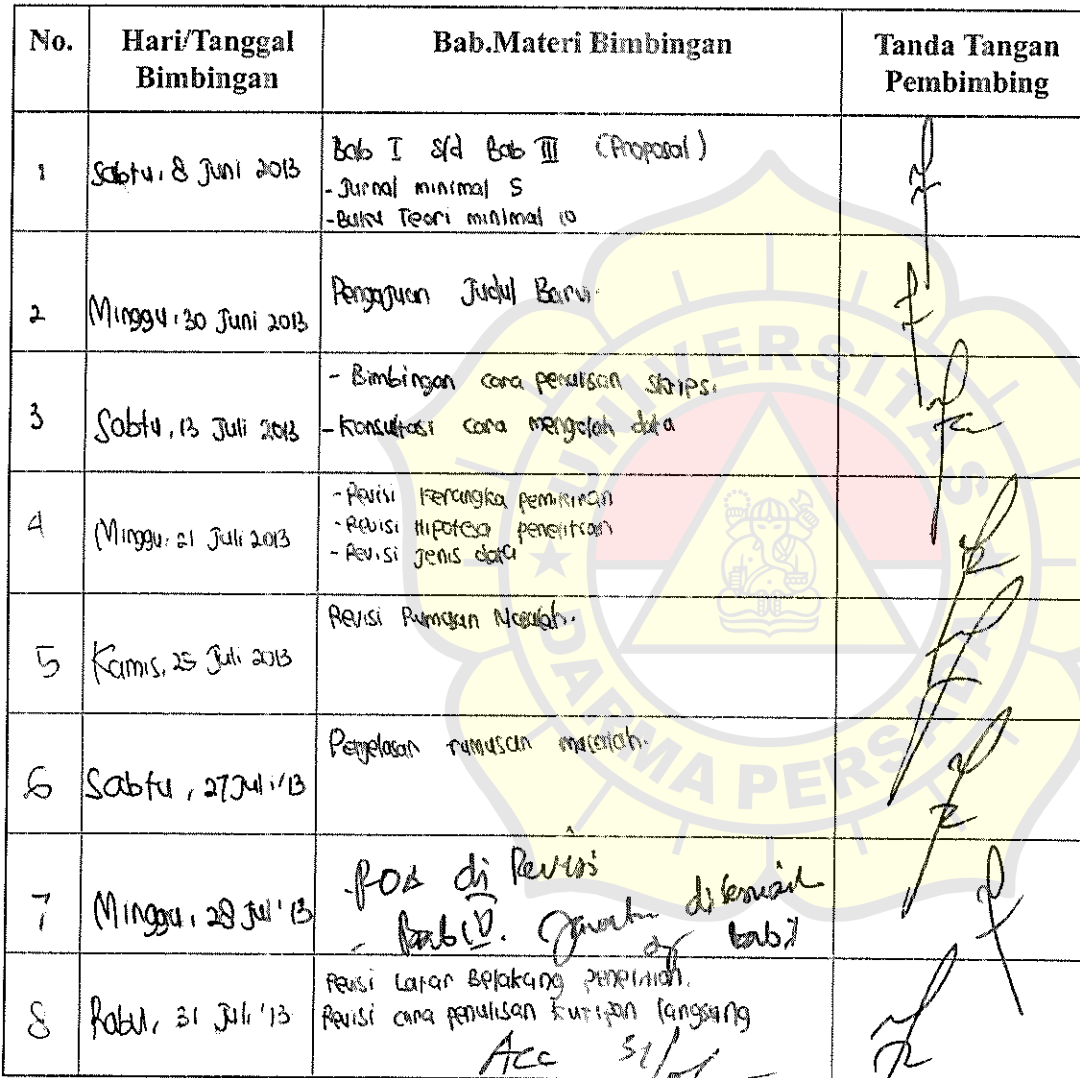 No. Hari/Tanggal Bimbingan Bab.Materi Bimbingan Tanda Tangan Pembimbing
1 Sabtu, 8 Juni 2013 Bab I s/d Bab III (Proposal)
- Jurnal minimal 5
- Buku Teori minimal 10
2 Minggu, 30 Juni 2013 Pengajuan Judul Baru.
3 Sabtu, 13 Juli 2013 - Bimbingan cara penulisan skripsi.
- Konsultasi cara mengolah data
4 Minggu, 21 Juli 2013 - Revisi kerangka pemikiran
- Revisi Hipotesa penelitian
- Revisi jenis data
5 Kamis, 25 Juli 2013 Revisi Rumusan Masalah.
6 Sabtu, 27 Juli '13 Penjelasan rumusan masalah.
7 Minggu, 28 Jul '13 di Revisi
- Bab IV. disesuaik
bab I
8 Rabu, 31 Juli '13 Revisi Latar Belakang penelitian.
Revisi cara penulisan kutipan langsung
Acc 31/
UNIVERSITAS
DARMA PERSADA